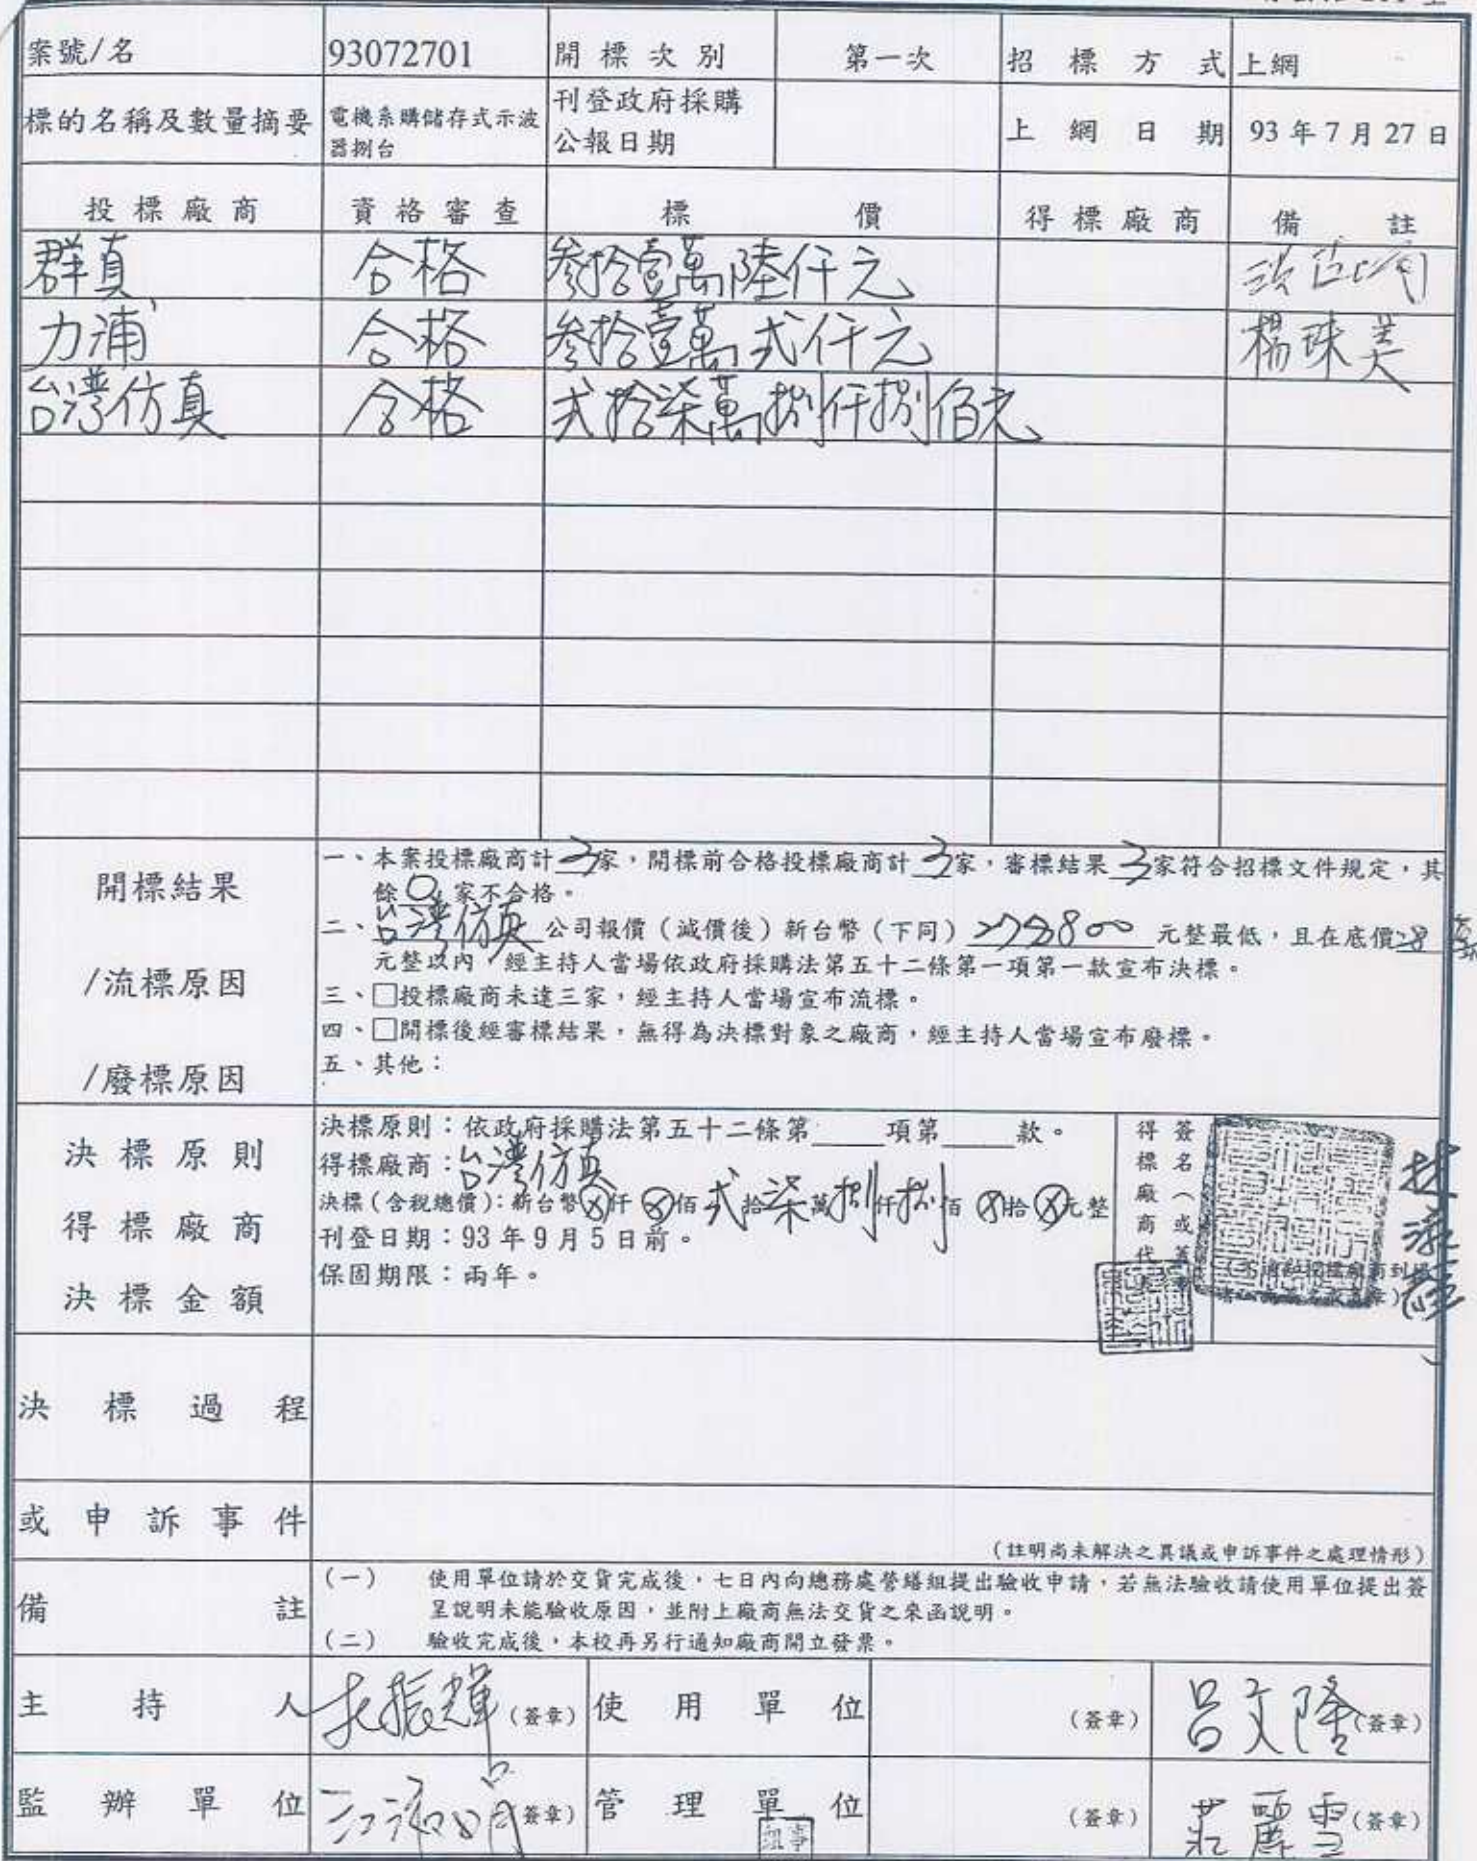 案號/名 93072701 開標次別 第一次 招標方式 上網
標的名稱及數量摘要 電機系購儲存式示波器捌台 刊登政府採購公報日期 上網日期 93年7月27日
投標廠商 資格審查 標價 得標廠商 備註
群真 合格 參拾壹萬陸仟元
力浦 合格 參拾壹萬弍仟元 楊珠美
台灣仿真 合格 弍拾柒萬捌仟捌佰元
開標結果
/流標原因
/廢標原因
一、本案投標廠商計3家,開標前合格投標廠商計3家,審標結果3家符合招標文件規定,其
餘0家不合格。
二、台灣仿真公司報價(減價後)新台幣(下同)278800元整最低,且在底價28萬
元整以內,經主持人當場依政府採購法第五十二條第一項第一款宣布決標。
三、□投標廠商未達三家,經主持人當場宣布流標。
四、□開標後經審標結果,無得為決標對象之廠商,經主持人當場宣布廢標。
五、其他:
決標原則
得標廠商
決標金額
決標原則:依政府採購法第五十二條第____項第____款。
得標廠商:台灣仿真
決標(含稅總價):新台幣ⓧ仟ⓧ佰弍拾柒萬捌仟捌佰ⓧ拾ⓧ元整
刊登日期:93年9月5日前。
保固期限:兩年。
得標廠商代
簽名(或蓋
決標過程
或申訴事件
(註明尚未解決之異議或申訴事件之處理情形)
備註
(一) 使用單位請於交貨完成後,七日內向總務處營繕組提出驗收申請,若無法驗收請使用單位提出簽
呈說明未能驗收原因,並附上廠商無法交貨之來函說明。
(二) 驗收完成後,本校再另行通知廠商開立發票。
主持人 (簽章) 使用單位 (簽章) 呂文隆 (簽章)
監辦單位 (簽章) 管理單位 (簽章) 莊麗雪 (簽章)